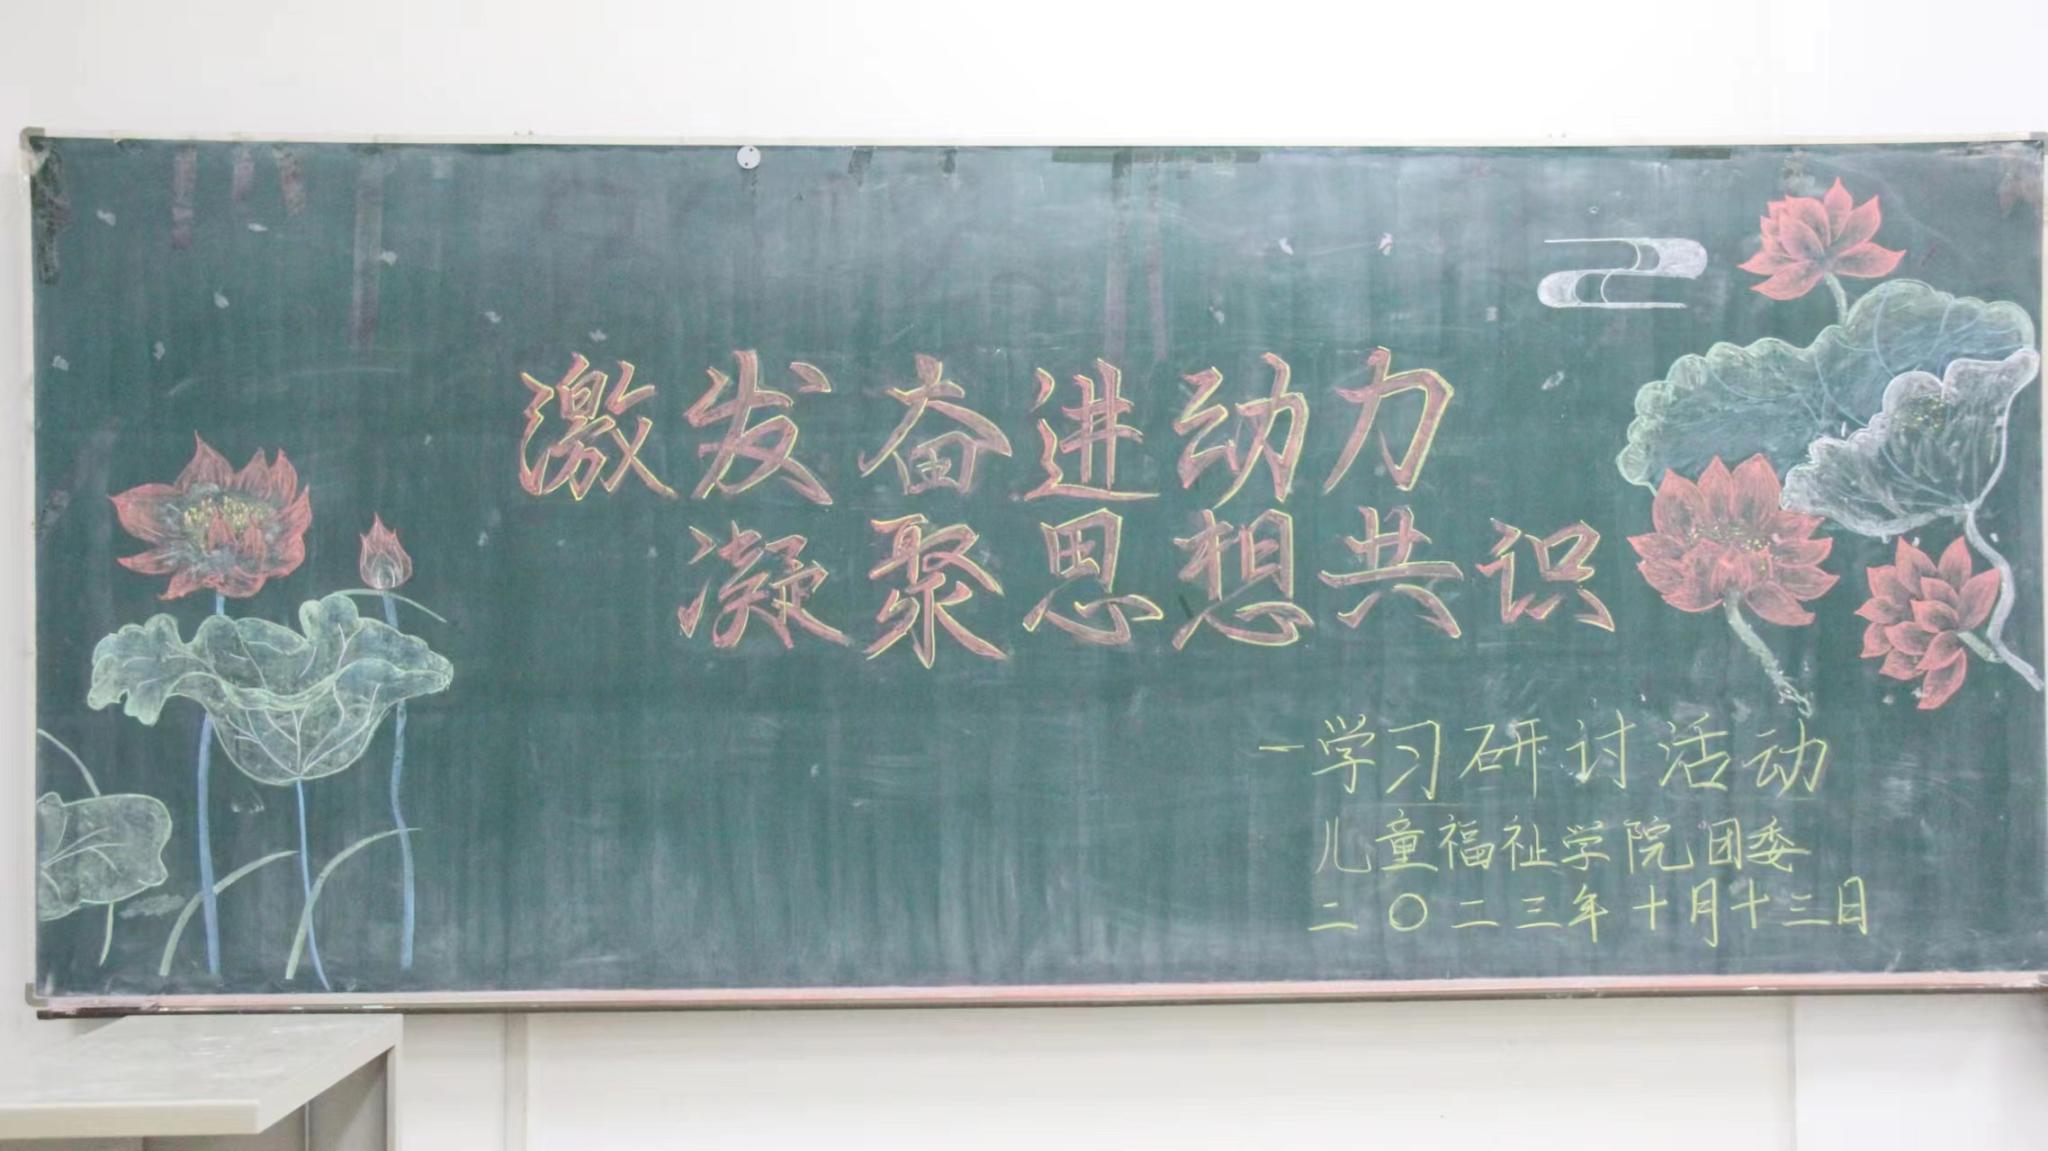 激发奋进动力
凝聚思想共识
一学习研讨活动
儿童福祉学院团委
二〇二三年十月十三日